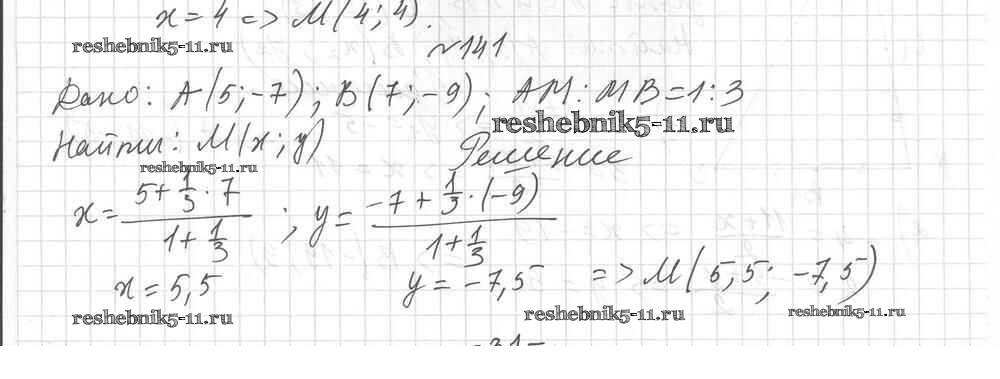 x = 4 => M(4; 4).
reshebnik5-11.ru
№141
Дано: A(5; -7); B(7; -9); AM : MB = 1 : 3
reshebnik5-11.ru
Найти: M(x; y)
Решение
reshebnik5-11.ru
x = (5 + 1/3 · 7) / (1 + 1/3) ; y = (-7 + 1/3 · (-9)) / (1 + 1/3)
x = 5,5 y = -7,5 => M(5,5; -7,5)
reshebnik5-11.ru reshebnik5-11.ru reshebnik5-11.ru